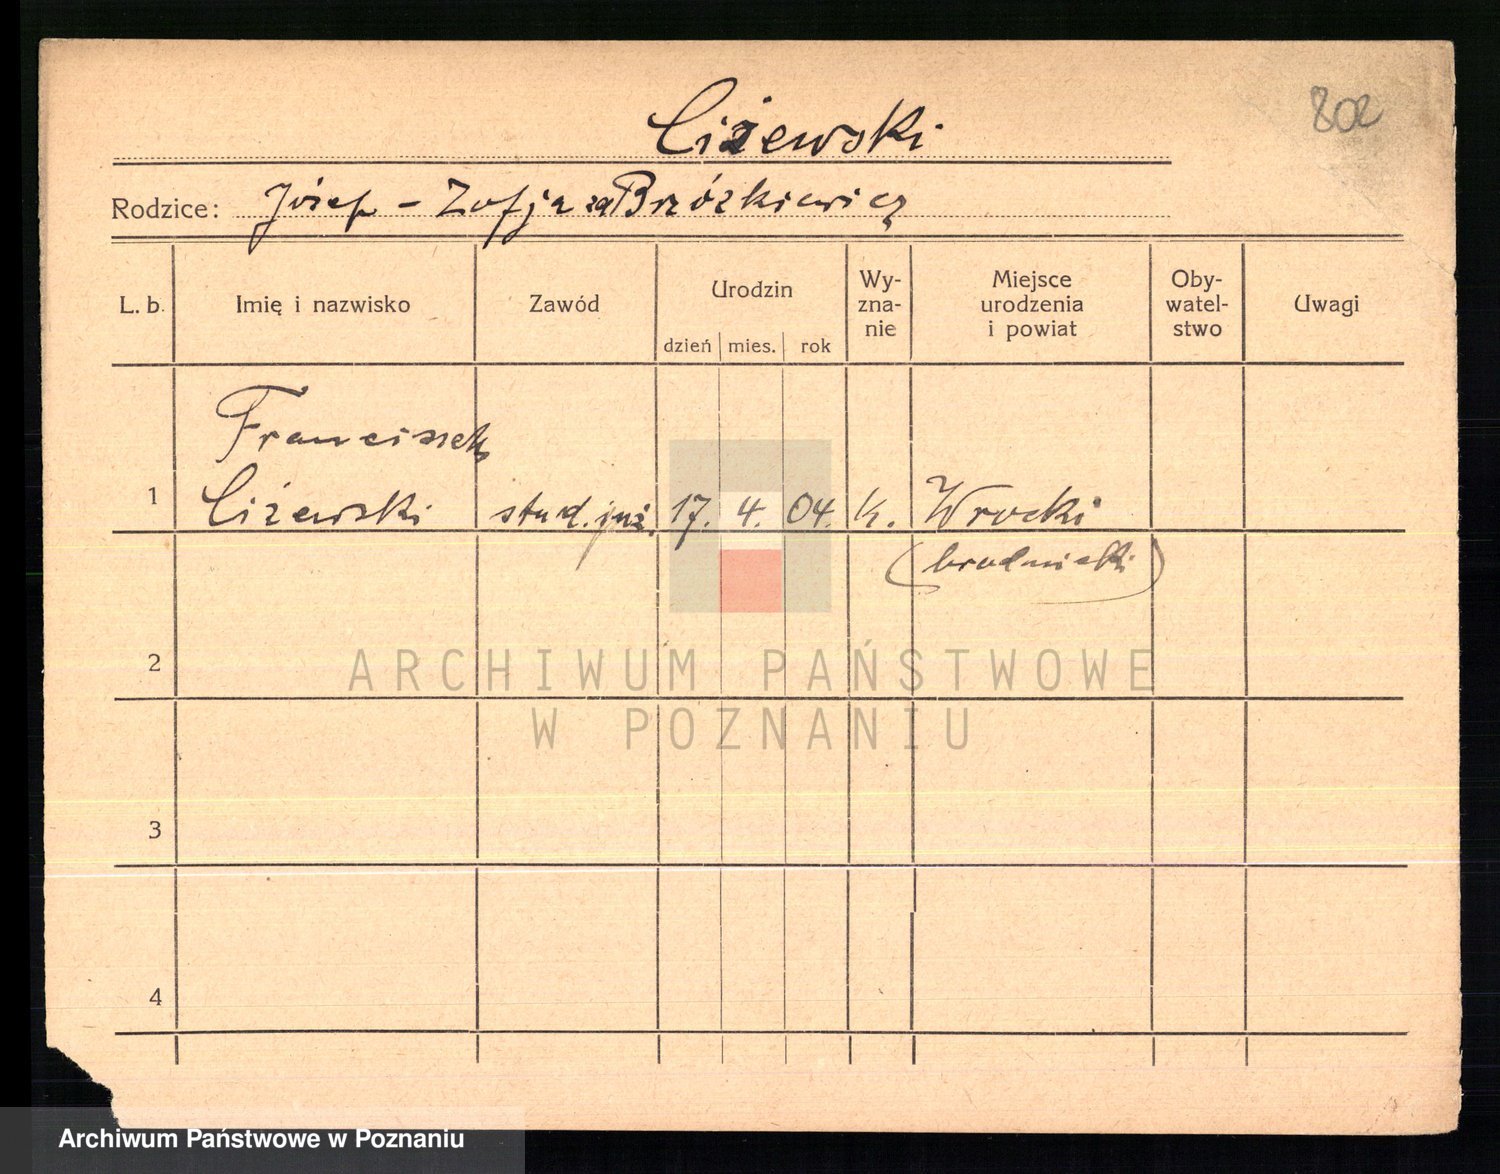 802
Ciżewski
Rodzice: Józef - Zofja za Brózkiewicz
L. b. Imię i nazwisko Zawód Urodzin dzień mies. rok Wy-zna-nie Miejsce urodzenia i powiat Oby-watel-stwo Uwagi
Franciszek
1 Ciżewski stud. 17. 4. 04. k. Wrocki
(brodnicki)
2
3
4
ARCHIWUM PAŃSTWOWE
W POZNANIU
Archiwum Państwowe w Poznaniu